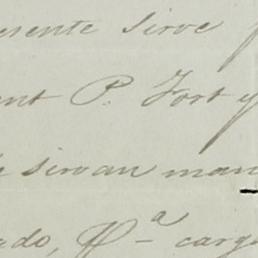 esente sirve
ent P. Fort y
sirvan man
ado, carg